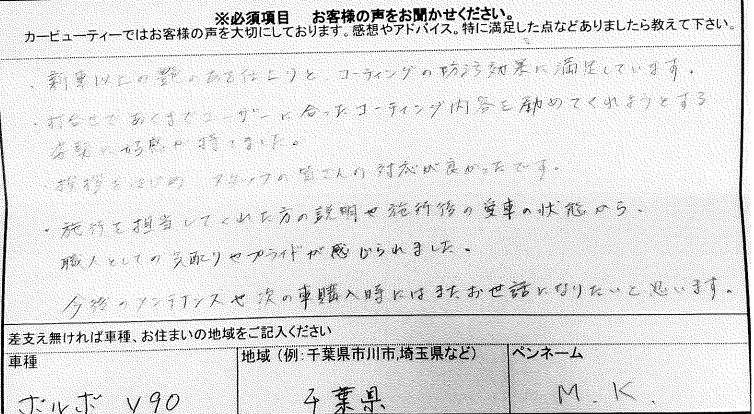 ※必須項目　お客様の声をお聞かせください。
カービューティーではお客様の声を大切にしております。感想やアドバイス。特に満足した点などありましたら教えて下さい。
・新車以上の艶のある仕上りと コーティングの防汚効果に満足しています。
・打合せであくまでユーザーに合ったコーティング内容を勧めてくれようとする
姿勢に好感が持てました。
・挨拶をはじめ スタッフの皆さんの対応が良かったです。
・施行を担当してくれた方の説明や施行後の愛車の状態から、
職人としての気配りやプライドが感じられました。
今後のメンテナンスや次の車購入時にはまたお世話になりたいと思います。
差支え無ければ車種、お住まいの地域をご記入ください
車種
地域（例:千葉県市川市,埼玉県など）
ペンネーム
ボルボ V90
千葉県
M.K.